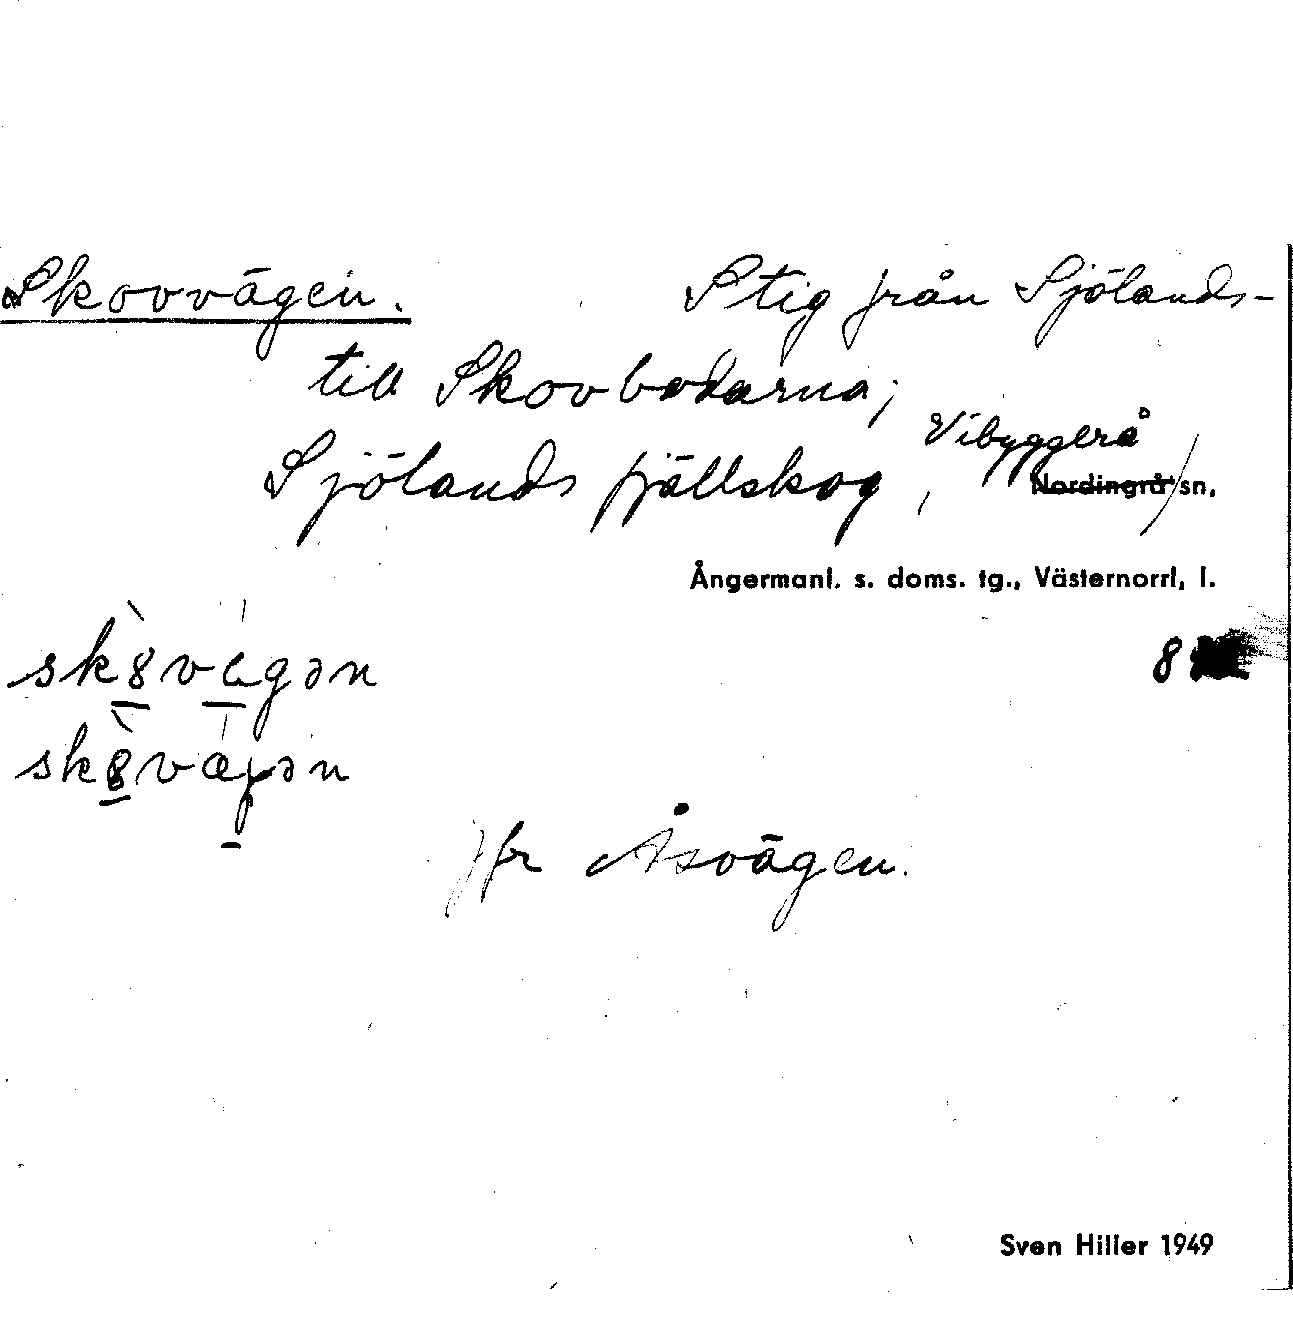 Skovvägen. Stig från Sjölands-
till Skovbodarna;
Sjölands fjällskog, Vibyggerå
Nordingrå sn,
Ångermanl. s. doms. tg., Västernorrl. l.
sk8vàgən
8
sk8væɡən
Jfr Åsvägen.
Sven Hiller 1949